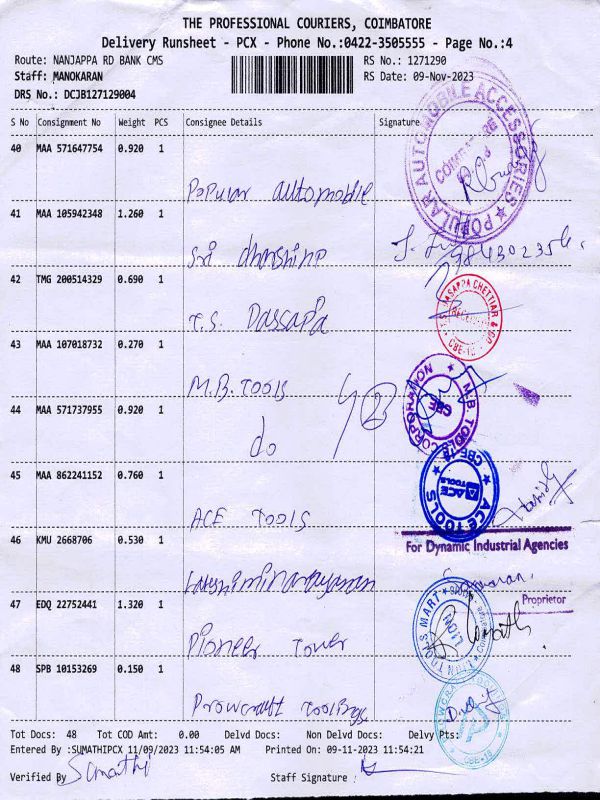 THE PROFESSIONAL COURIERS, COIMBATORE
Delivery Runsheet - PCX - Phone No.:0422-3505555 - Page No.:4
Route: NANJAPPA RD BANK CMS RS No.: 1271290
Staff: MANOKARAN RS Date: 09-Nov-2023
DRS No.: DCJB127129004
S No Consignment No Weight PCS Consignee Details Signature
40 MAA 571647754 0.920 1
POPULAR AUTOMOBILE ACCESSORIES
Popular automobile
41 MAA 105942348 1.260 1
Sri
42 TMG 200514329 0.690 1
T.S. Dassapa
43 MAA 107018732 0.270 1
M.B. TOOLS
M.B. TOOLS CORPORATION CBE
44 MAA 571737955 0.920 1
do 2
45 MAA 862241152 0.760 1
ACE TOOLS CBE-18
ACE TOOLS
46 KMU 2668706 0.530 1
For Dynamic Industrial Agencies
Lakshminarayanan
Proprietor
47 EDQ 22752441 1.320 1
Pioneer Tower
48 SPB 10153269 0.150 1
Prowcraft Toolings
CBE-18
Tot Docs: 48 Tot COD Amt: 0.00 Delvd Docs: Non Delvd Docs: Delvy Pts:
Entered By :SUMATHIPCX 11/09/2023 11:54:05 AM Printed On: 09-11-2023 11:54:21
Verified By Sumathi Staff Signature :